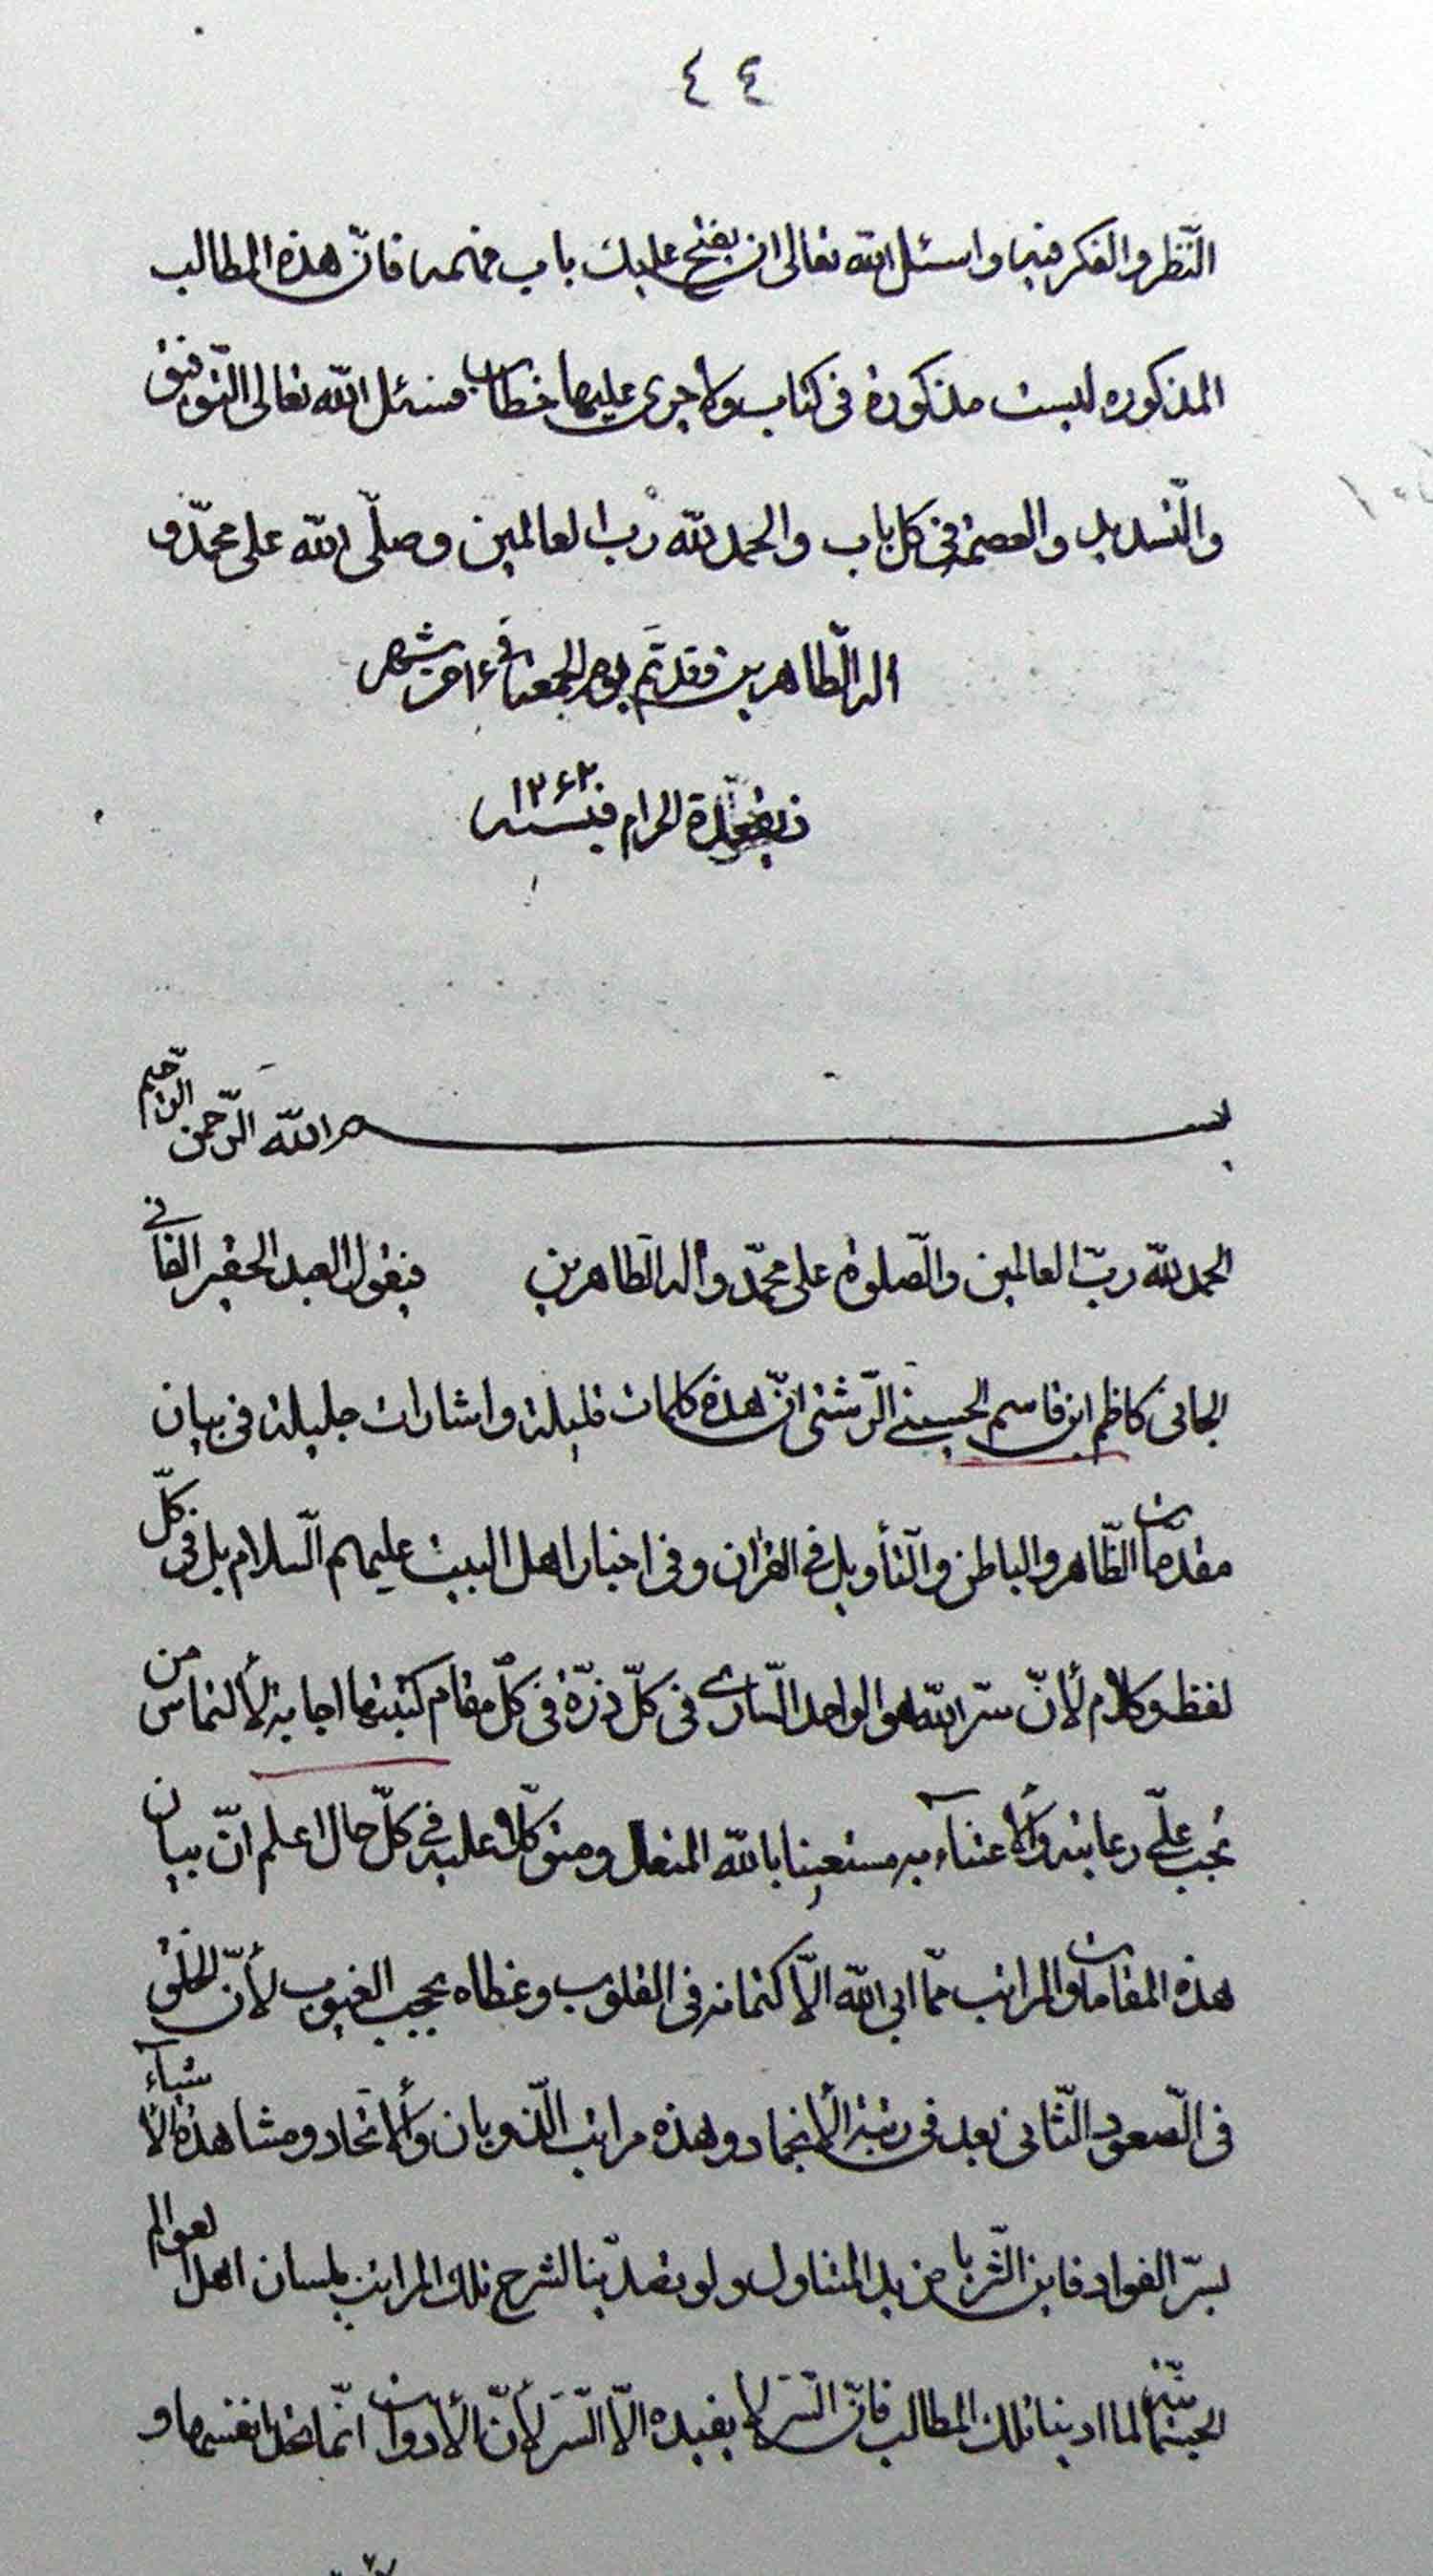 ٤٤
النّظر والفكر فيها واسئل الله تعالى ان يفتح عليك باب فهمه فانّ هذه المطالب
المذكوره ليست مذكورة فى كتاب ولا جرى عليها خطاب فنسئل الله تعالى التّوفيق
والتّسديد والعصمة فى كل باب والحمد لله رب العالمين وصلّى الله على محمّد و
اله الطّاهرين فقد تمّ يوم الجمعة فى اخر شهر
ذيقعدة الحرام فى سنه ١٢٦٢
بسم الله الرّحمن الرّحيم
الحمد لله ربّ العالمين والصّلوة على محمّد واله الطّاهرين فيقول العبد الحقير الفانى
الجانى كاظم ابن قاسم الحسينى الرّشتى انّ هذه كلمات قليلة واشارات جليلة فى بيان
مقدّمات الظّاهر والباطن والتّأويل فى القران وفى اخبار اهل البيت عليهم السّلام بل فى كلّ
لفظ وكلام لأنّ سرّ الله هو الواحد السّارى فى كلّ ذرّة فى كلّ مقام كتبتها اجابة لألتماس من
يجب علىّ رعايته وألأعتناء به مستعينا بالله المتعال ومتوكّلا عليه فى كلّ حال اعلم انّ بيان
هذه المقامات والمراتب ممّا ابى الله الّا كتمانه فى القلوب وغطاه بحجب الغيوب لأنّ الخلق
فى الصّعود الثّانى بعد فى رتبة ألأنجماد وهذه مراتب الذّوبان وألأتّحاد ومشاهدة الأشياء
بسرّ الفواد فاين الثّريا من يد المتناول ولو تصدّينا لشرح تلك المراتب بلسان اهل العوالم
لما ادينا تلك المطالب فانّ السّر لا يفيده الّا السّر لأنّ ألأدوات انّما تحدّ انفسها و